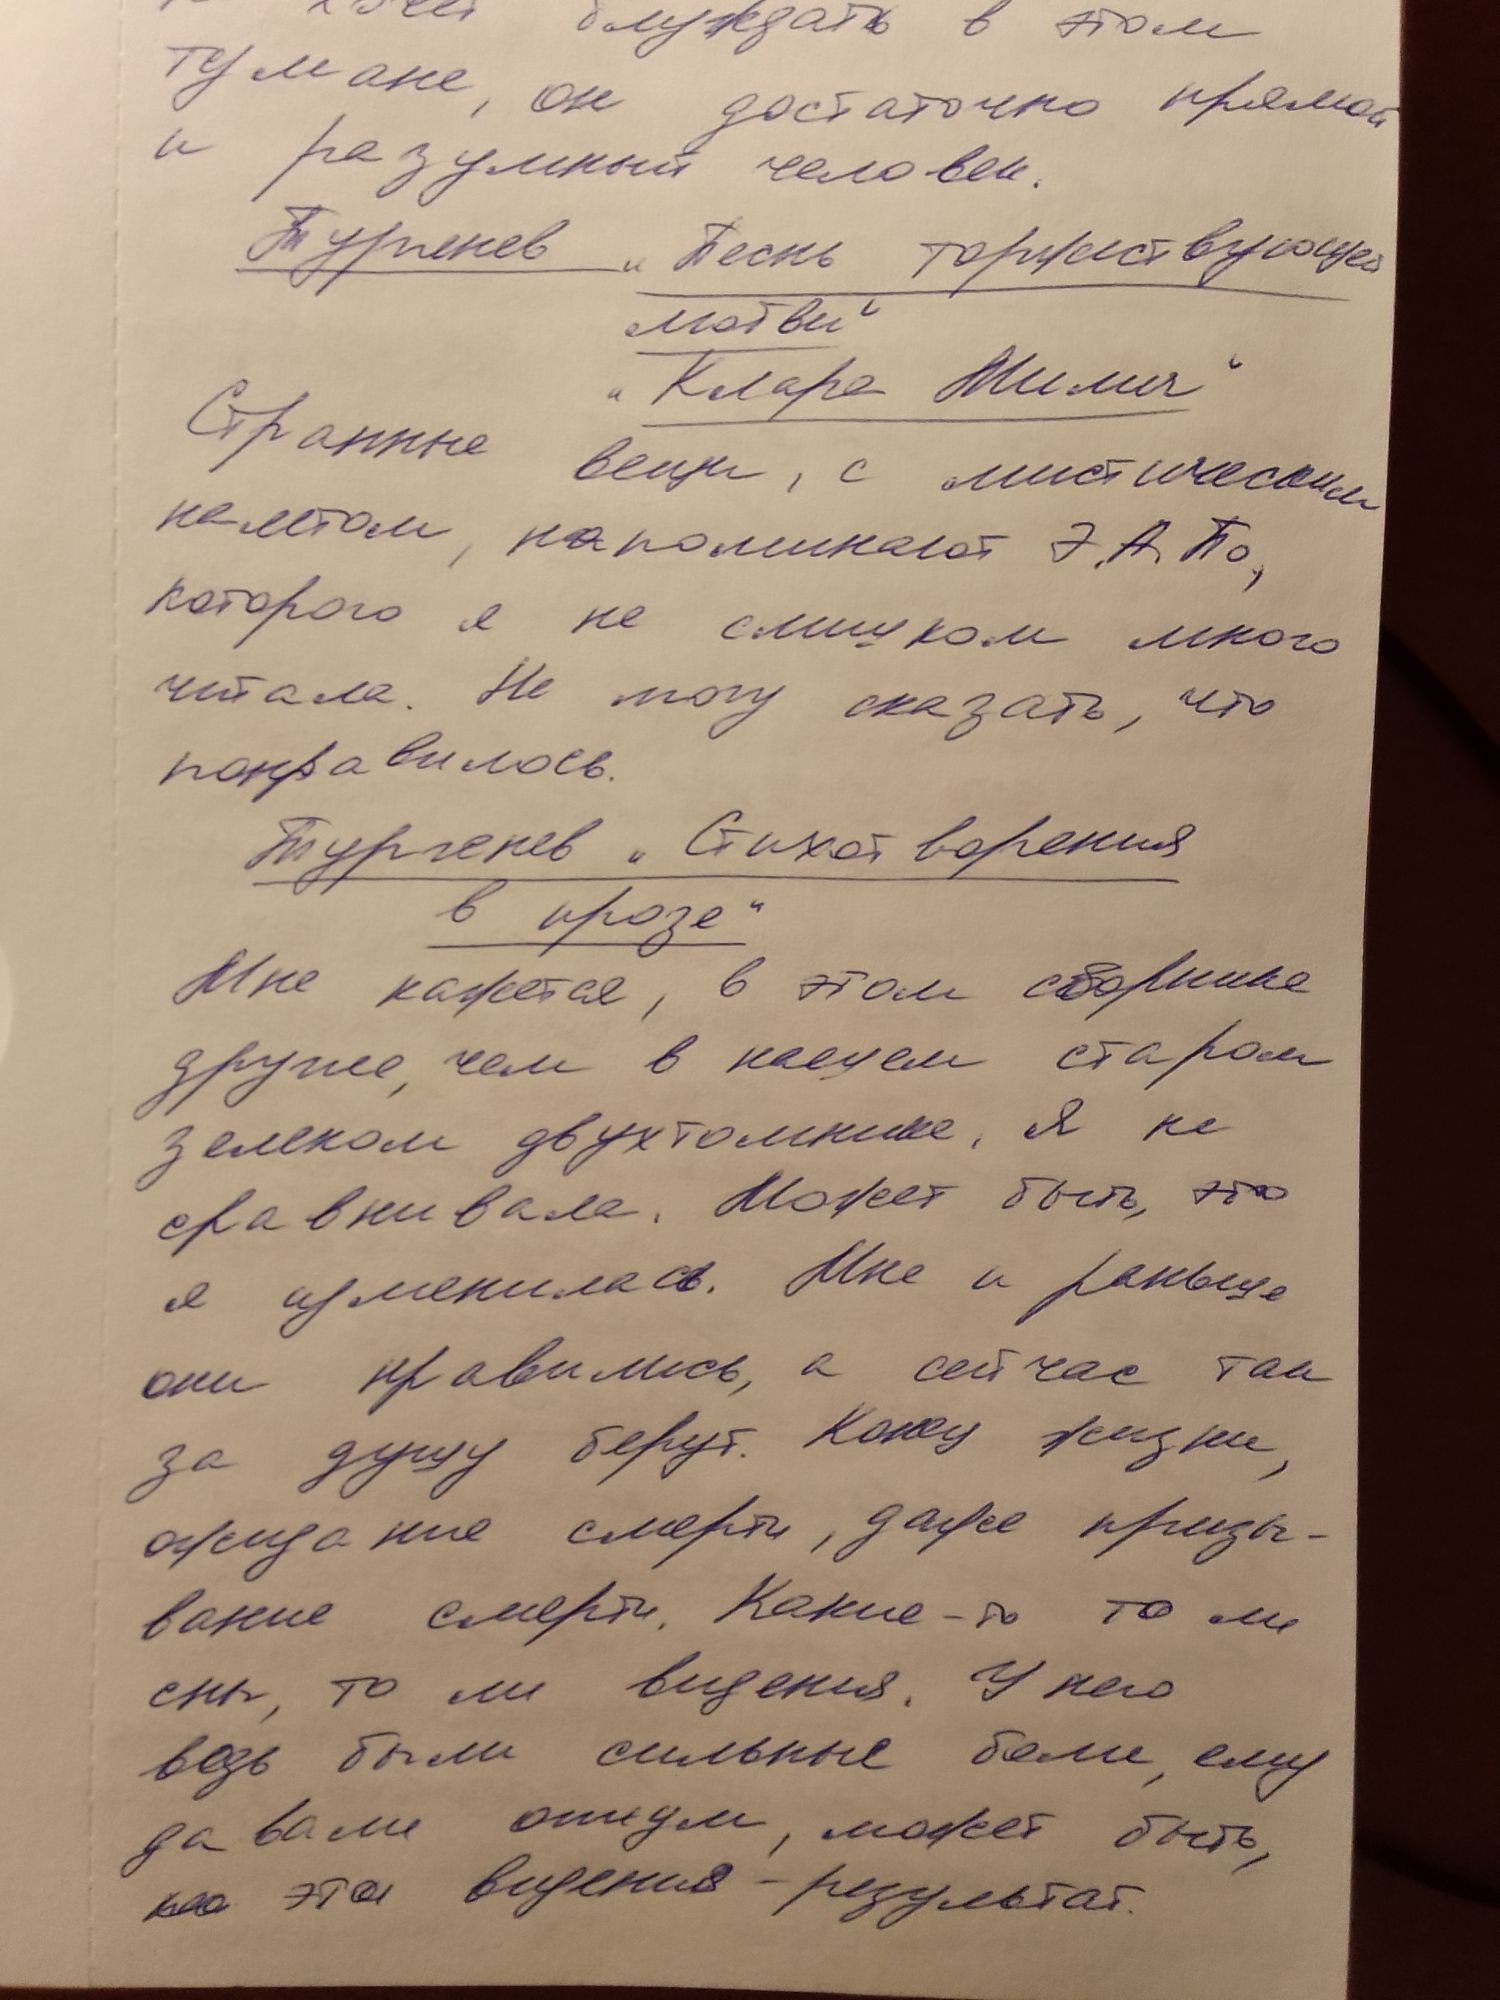 хочет блуждать в этом
тумане, он достаточно прямой
и разумный человек.
Тургенев „Песнь торжествующей
любви“
„Клара Милич“
Странные вещи, с мистическим
налётом, напоминают Э.А. По,
которого я не слишком много
читала. Не могу сказать, что
понравилось.
Тургенев „Стихотворения
в прозе“
Мне кажется, в этом сборнике
другие, чем в нашем старом
зеленом двухтомнике. Я не
сравнивала. Может быть, это
я изменилась. Мне и раньше
они нравились, а сейчас так
за душу берут. Конец жизни,
ожидание смерти, даже призы-
вание смерти. Какие-то то ли
сны, то ли видения. У него
ведь были сильные боли, ему
давали опиум, может быть,
эти видения – результат.